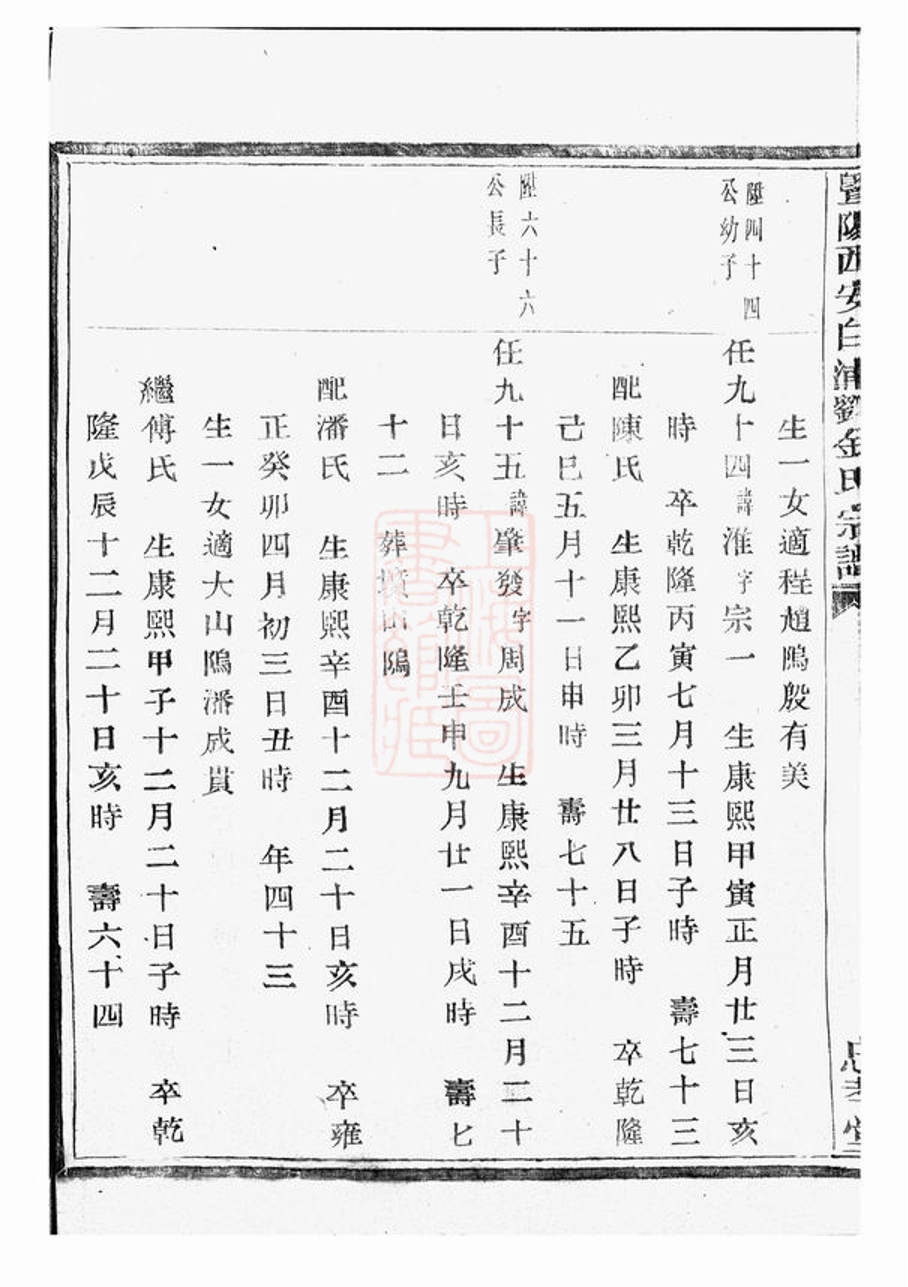 暨陽西安白浦劉金氏宗譜
忠孝堂
生一女適程趙隖殷有美
陞四十四
公幼子
任九十四諱淮字宗一 生康熙甲寅正月廿三日亥
時 卒乾隆丙寅七月十三日子時 壽七十三
配陳氏 生康熙乙卯三月廿八日子時 卒乾隆
己巳五月十一日申時 壽七十五
陞六十六
公長子
任九十五諱肇發字周成 生康熙辛酉十二月二十
日亥時 卒乾隆壬申九月廿一日戌時 壽七
十二 葬墳山隖
配潘氏 生康熙辛酉十二月二十日亥時 卒雍
正癸卯四月初三日丑時 年四十三
生一女適大山隖潘成貫
繼傅氏 生康熙甲子十二月二十日子時 卒乾
隆戊辰十二月二十日亥時 壽六十四